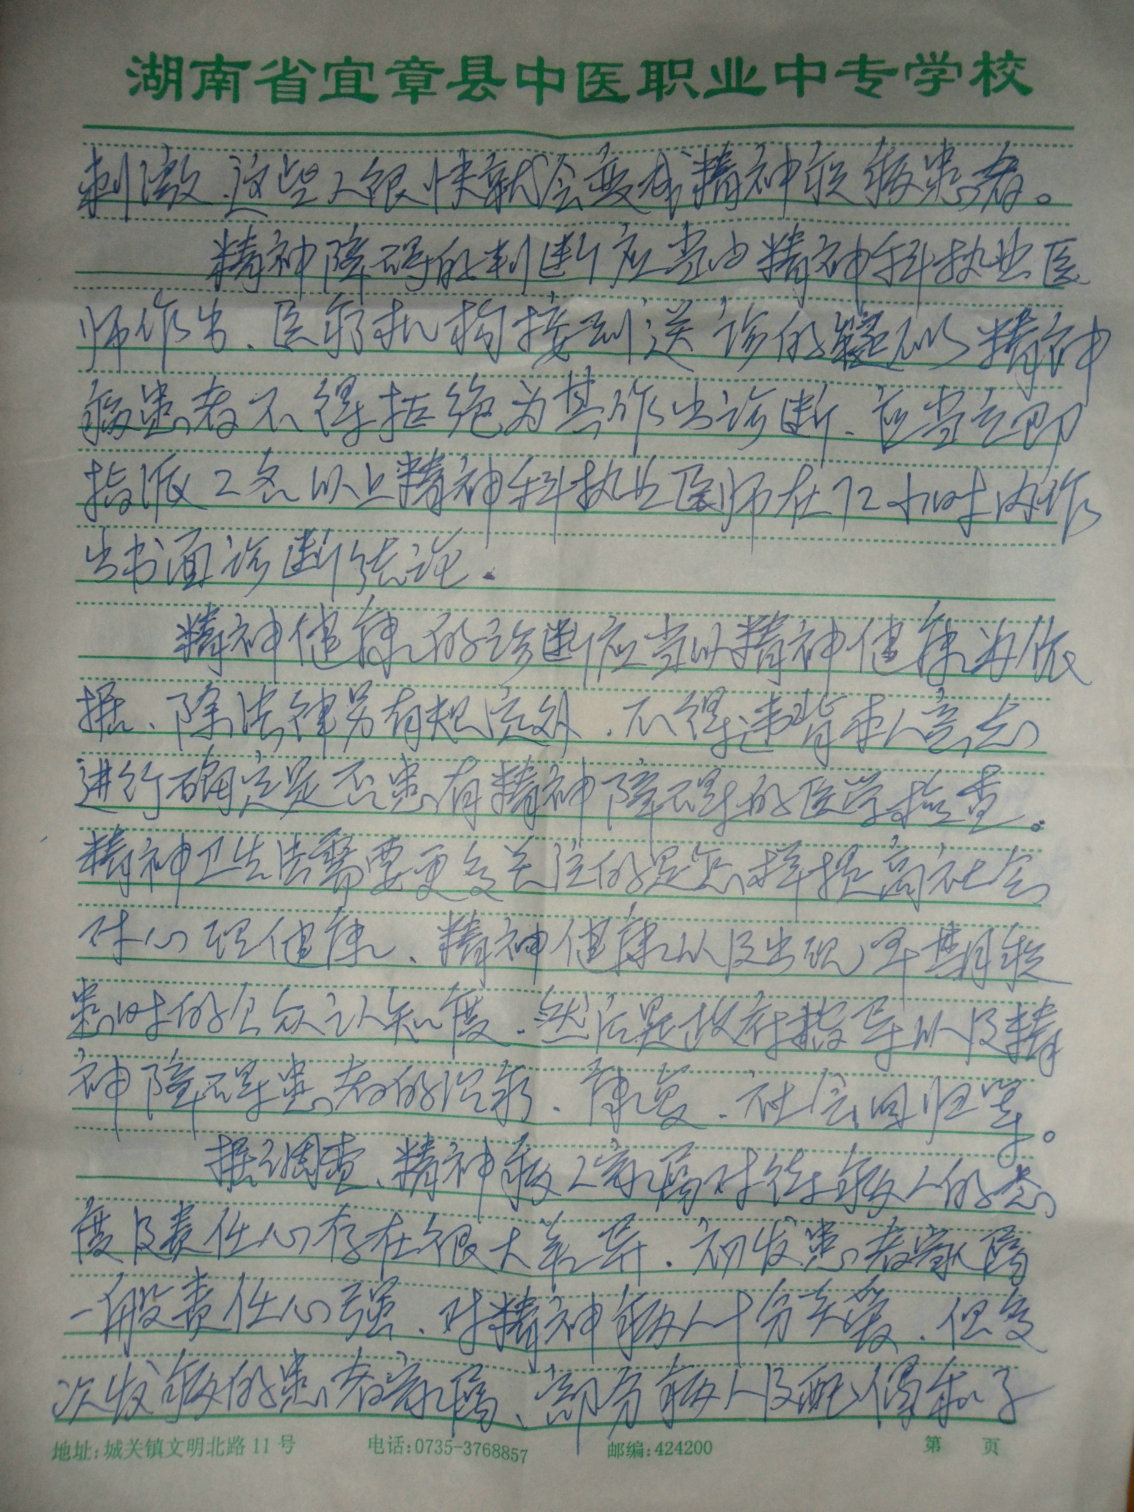 湖南省宜章县中医职业中专学校
刺激,这些人很快就会变成精神疾病患者。
精神障碍的判断应当由精神科执业医
师作出、医疗机构接到送诊的疑似精神
病患者不得拒绝为其作出诊断、应当立即
指派2名以上精神科执业医师在72小时内作
出书面诊断结论.
精神健康的诊断应当以精神健康为依
据、除法律另有规定外.不得违背本人意志
进行确定是否患有精神障碍的医学检查。
精神卫生法需要更多关注的是怎样提高社会
对心理健康、精神健康以及出现早期疾
患时的公众认知度.然后是政府指导以及精
神障碍患者的治疗、康复.社会回归等。
据调查、精神病人家属对待病人的态
度及责任心存在很大差异.初发患者家属
一般责任心强.对精神病人十分关爱.但多
次发病的患者家属、部分病人及配偶和子
地址:城关镇文明北路11号 电话:0735-3768857 邮编:424200 第 页